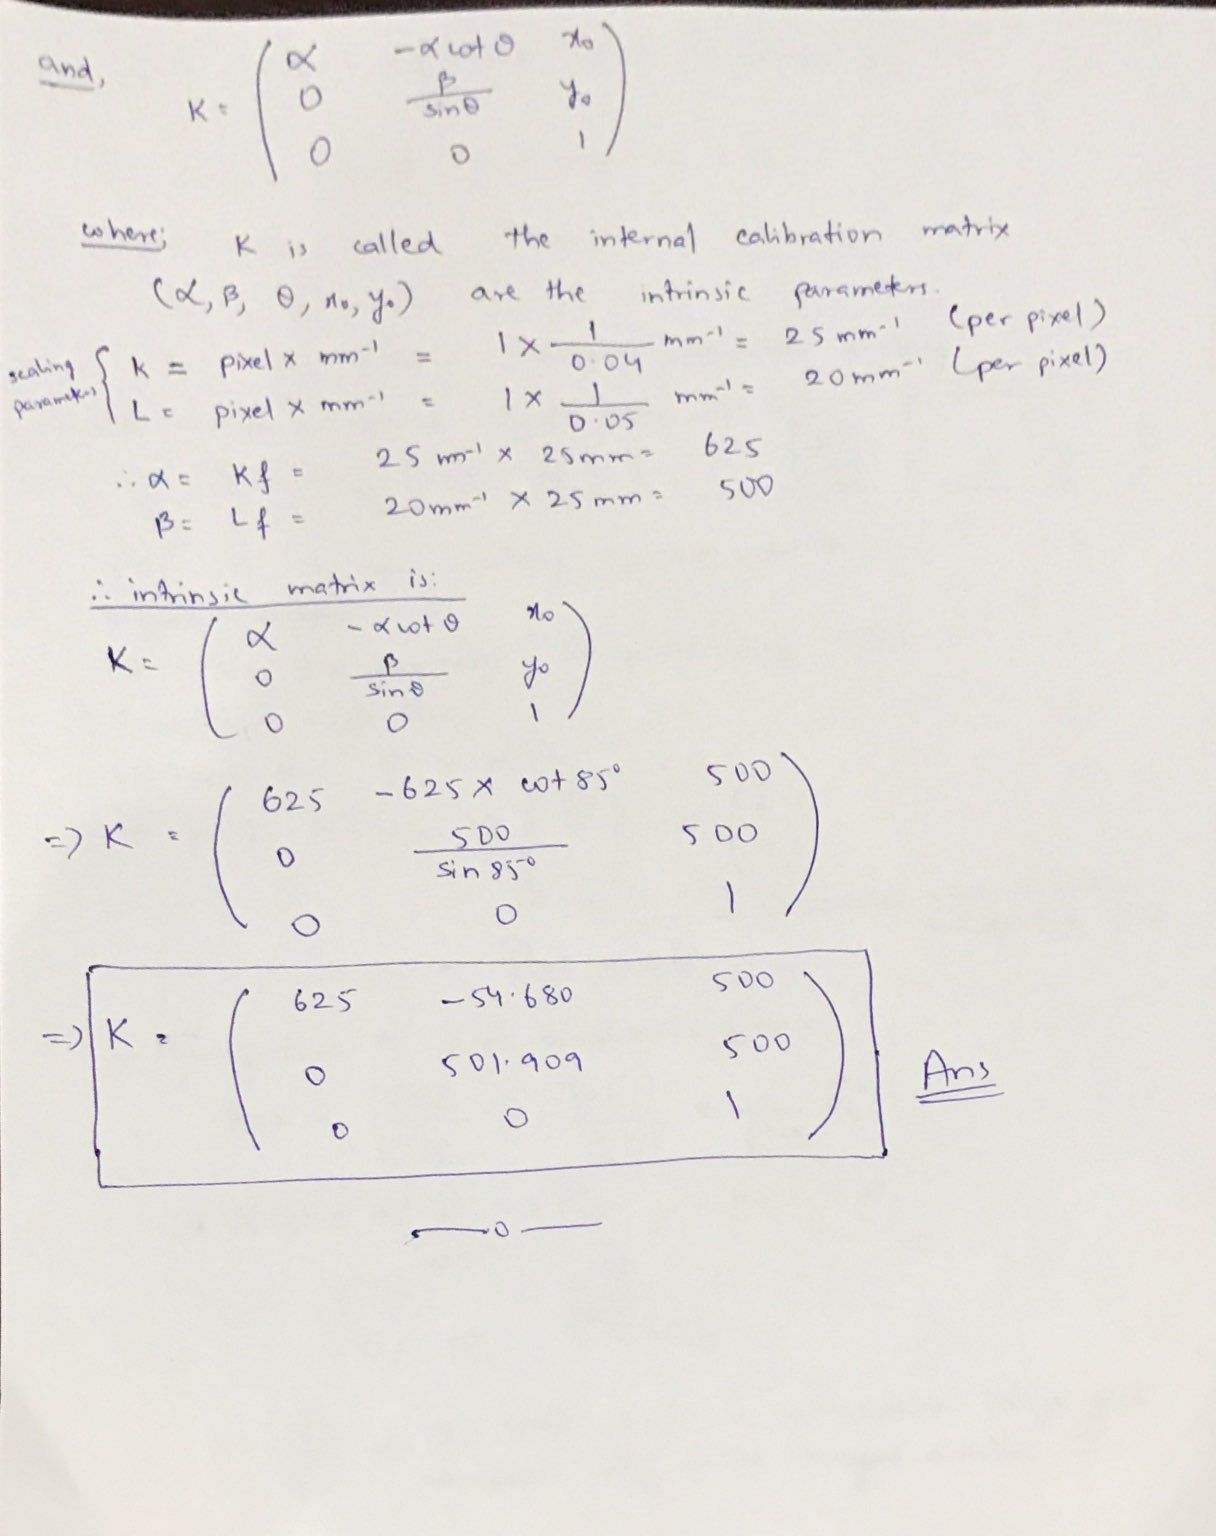 and,
K = ( α -α cot θ x₀
0 β/sinθ y₀
0 0 1 )
where; K is called the internal calibration matrix
(α, β, θ, x₀, y₀) are the intrinsic parameters.
scaling parameters { K = pixel x mm⁻¹ = 1 × 1/0.04 mm⁻¹ = 25 mm⁻¹ (per pixel)
L = pixel x mm⁻¹ = 1 × 1/0.05 mm⁻¹ = 20 mm⁻¹ (per pixel)
∴ α = Kf = 25 mm⁻¹ × 25 mm = 625
β = Lf = 20 mm⁻¹ × 25 mm = 500
∴ intrinsic matrix is:
K = ( α -α cot θ x₀
0 β/sinθ y₀
0 0 1 )
=> K = ( 625 -625 × cot 85° 500
0 500/sin 85° 500
0 0 1 )
=> K = ( 625 -54.680 500
0 501.909 500
0 0 1 )
Ans
—o—